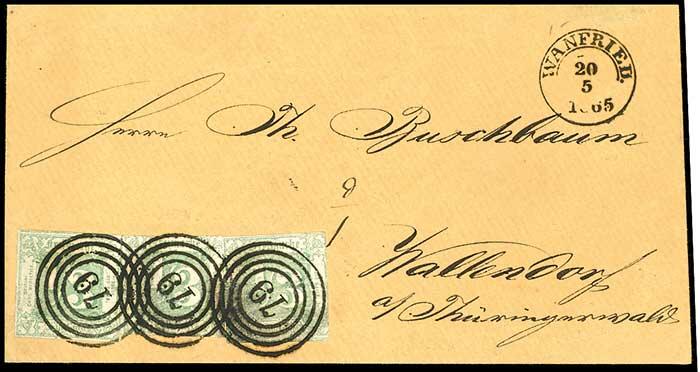 WANFRIED.
20
5
1865
Herrn Th. Buschbaum
Wallendorf
a/Thüringerwald
79 79 79